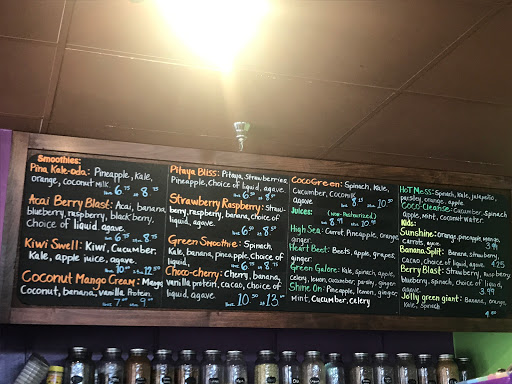 Smoothies:
Pina Kale-ada: Pineapple, Kale,
orange, coconut milk.
6.75 8.75
Acai Berry Blast: Acai, banana,
blueberry, raspberry, blackberry,
Choice of liquid, agave.
6.50 8.75
Kiwi Swell: Kiwi, Cucumber,
Kale, apple juice, agave.
10.50 12.50
Coconut Mango Cream:
Coconut, banana, vanilla Protein.
7 9
Pitaya Bliss: Pitaya, Strawberries,
Pineapple, Choice of liquid, agave.
6.50 8.50
Strawberry Raspberry: Straw-
berry, raspberry, banana, choice of
liquid, agave.
6.50 8.75
Green Smoothie: Spinach,
Kale, banana, pineapple, choice of
liquid.
6.50 8.75
Choco-Cherry: Cherry, banana,
vanilla protein, cacao, choice of
liquid, agave.
10.50 13.50
Coco Green: Spinach, Kale,
Cucumber, Coconut
agave
8.50 10.50
Juices: (non-Pasteurized)
8.95 10.95
High Sea: Carrot, Pineapple, Orange,
ginger
Heart Beet: Beets, apple, grapes,
ginger
Green Galore: Kale, spinach, apple,
celery, lemon, cucumber, parsley, ginger
Shine On: Pineapple, lemon, ginger,
Mint, Cucumber, celery
Hot Mess: Spinach, Kale, jalapeño,
parsley, orange, apple
Coco Cleanse: Cucumber, Spinach
Apple, Mint, coconut water.
Kids:
Sunshine: Orange, pineapple, mango,
carrots, agave
3.99
Banana Split: Banana, strawberry,
cacao, choice of liquid, agave. 4.25
Berry Blast: Strawberry, raspberry,
blueberry, spinach, choice of liquid,
agave
3.99
Jolly green giant: Banana, orange,
Kale, Spinach